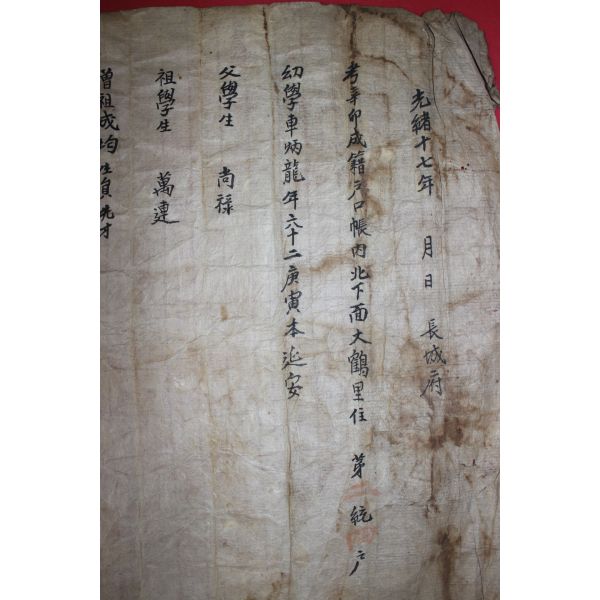 光緖十七年 月 日 長城府
考辛卯成籍戶口帳內北下面大鶴里住 第 統 戶
幼學車炳龍年六十二庚寅本延安
父學生 尚祿
祖學生 萬連
曾祖成均生員 才